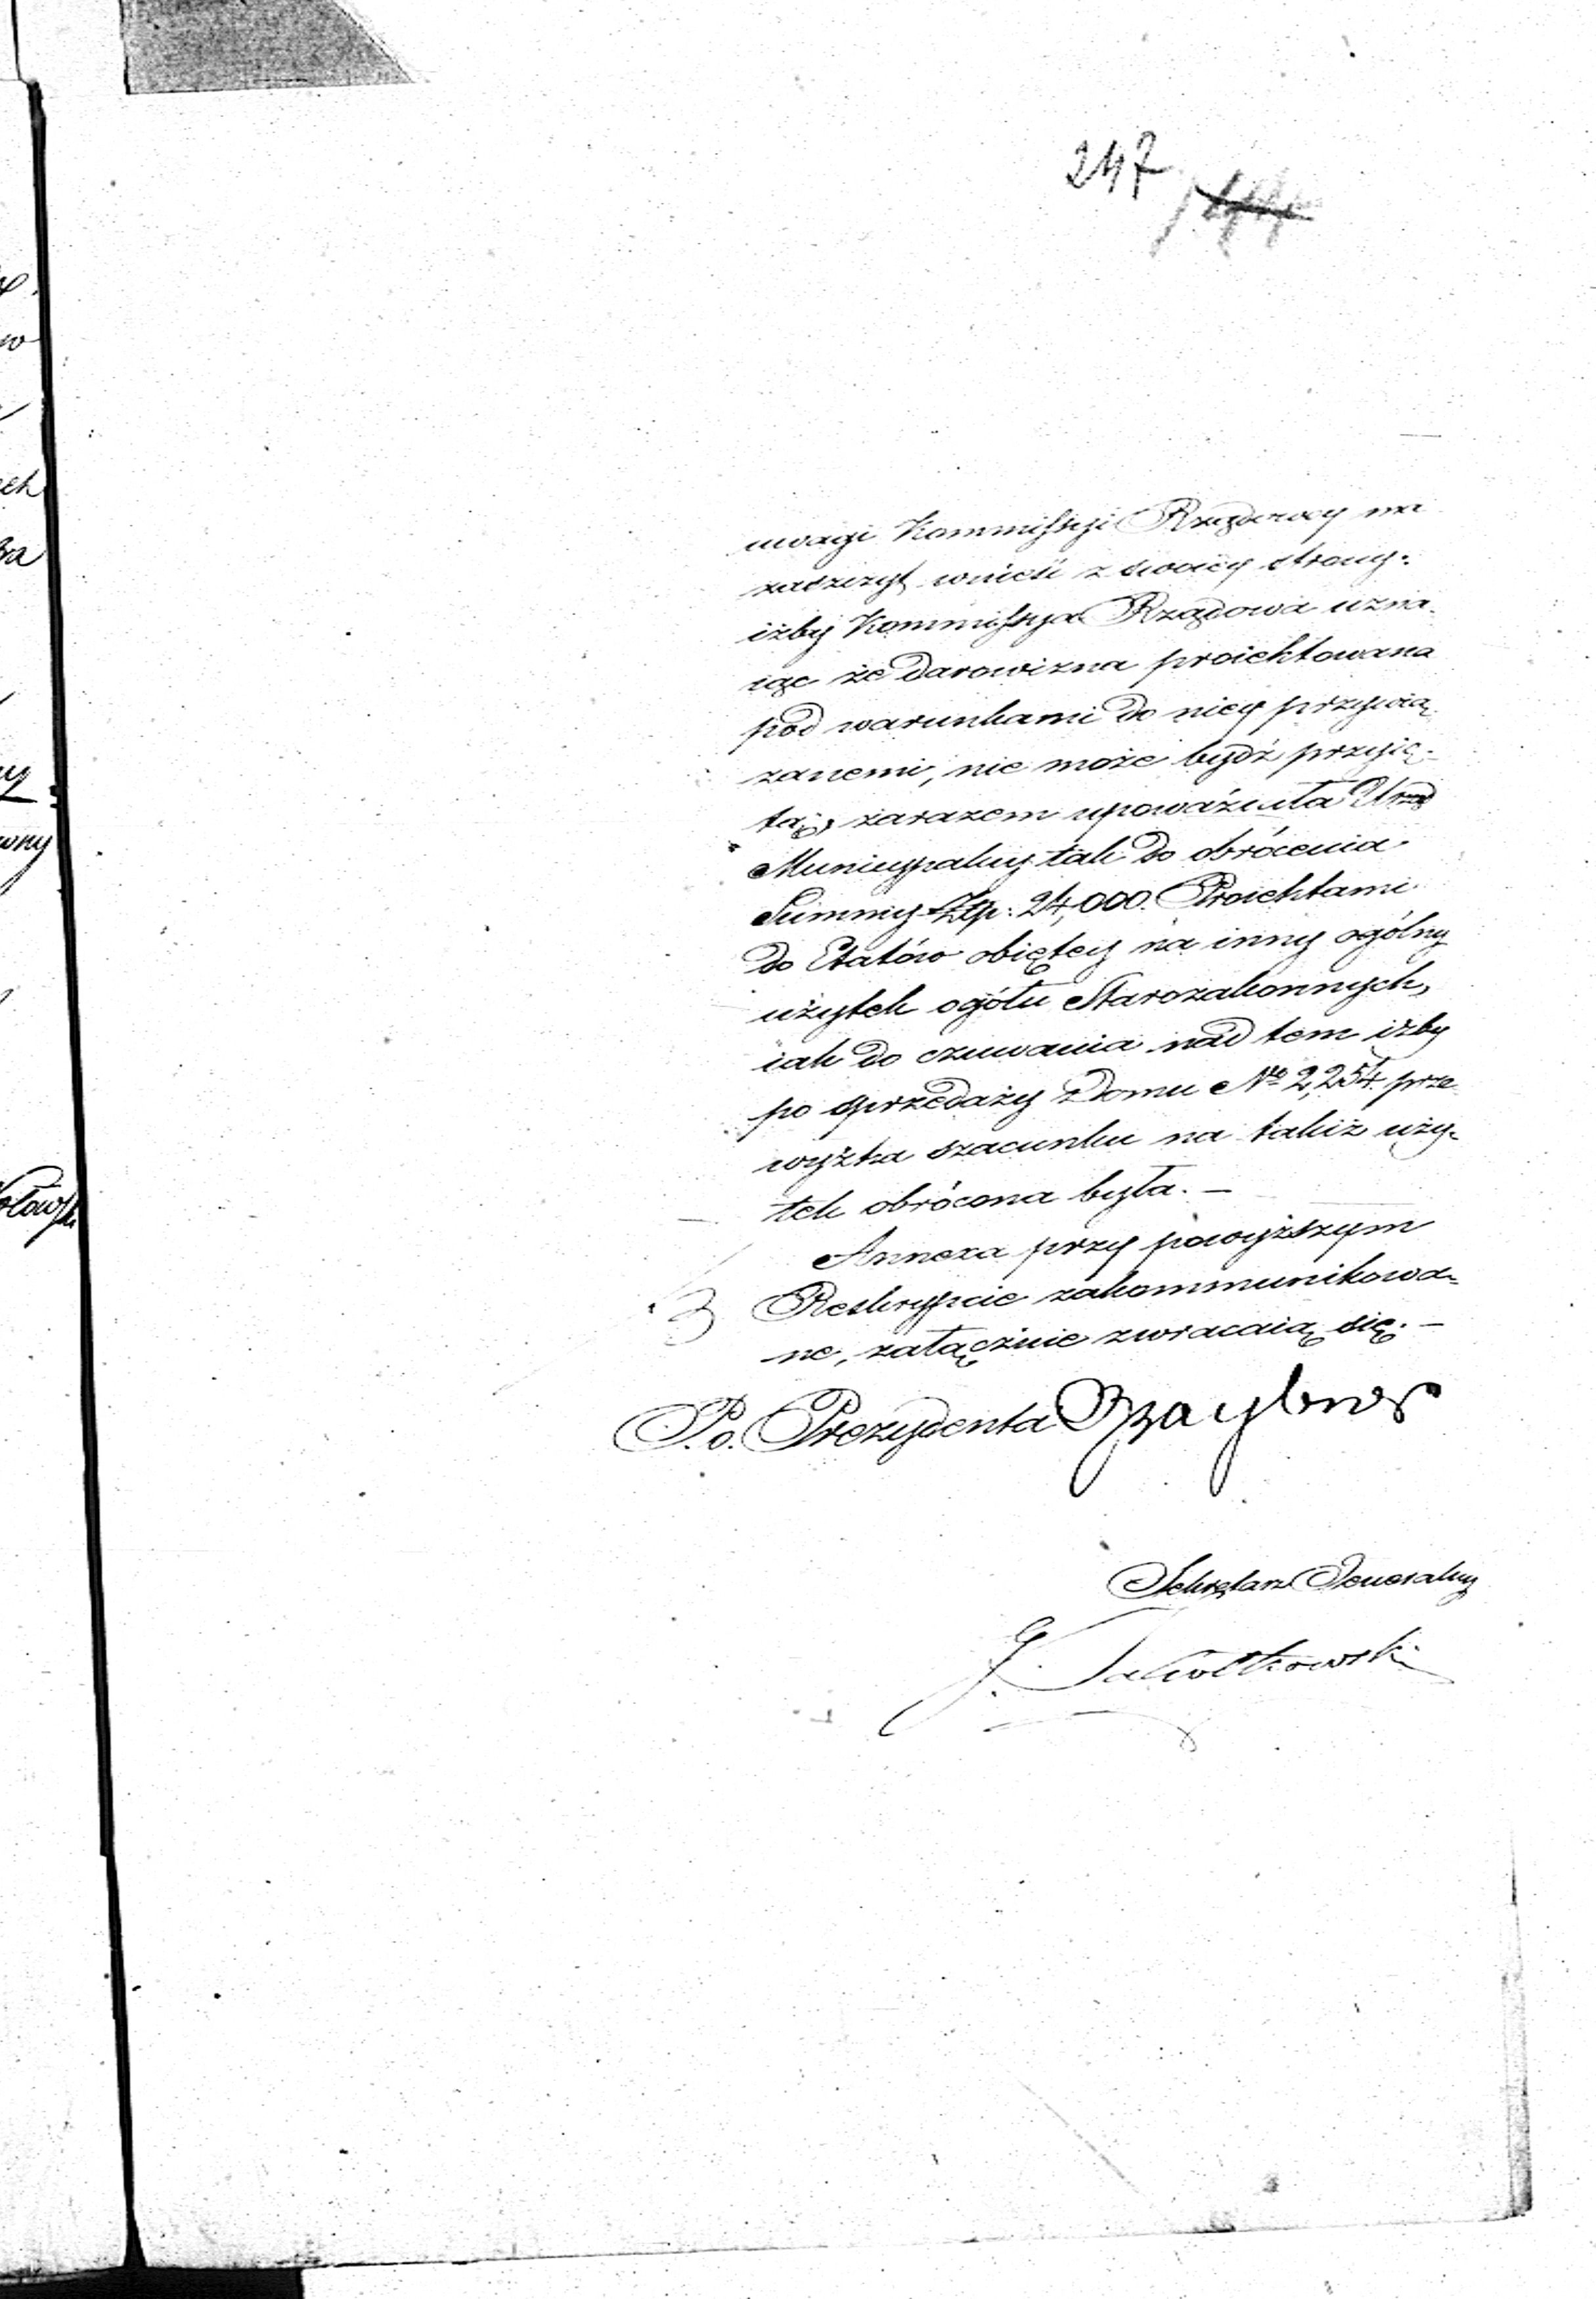 247
uwagi Kommissyi Rządowey ma
zaszczyt wnieść z swoiey strony:
iżby Kommissya Rządowa uzna-
iąc że darowizna proiektowana
pod warunkami do niey przywią-
zanemi, nie może bydź przyię-
tą, zarazem upoważniła Urząd
Municypalny tak do obrócenia
Summy Złp: 24,000. Proiektami
do Etatów obiętey na inny ogólny
użytek ogółu Starozakonnych,
iak do czuwania nad tem iżby
po sprzedaży Domu No 2,254. prze
wyżka szacunku na takiż uży-
tek obrócona była. —
Annexa przy powyższym
3 Reskrypcie zakommunikowa-
ne, załącznie zwracaią się. —
P. o. Prezydenta
Sekretarz Jeneralny